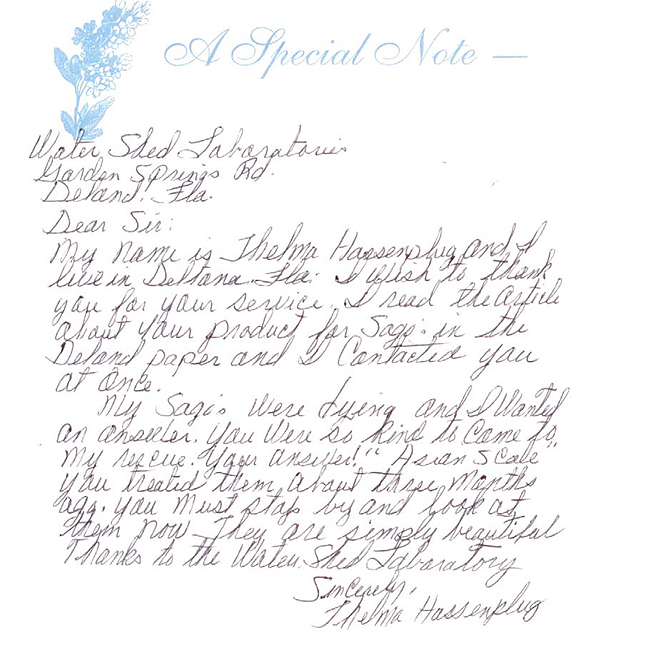 A Special Note —
Water Shed Laboratories
Garden Springs Rd.
Deland, Fla.
Dear Sir:
My name is Thelma Hassenplug and I
live in Deltona Fla. I wish to thank
you for your service. I read the article
about your product for Sago's in the
Deland paper and I Contacted you
at Once.
My Sago's were dying and I Wanted
an answer. You were so kind to come to
my rescue. Your answer!" Asian Scale"
You treated them about three months
ago. You must stop by and look at
them now They are simply beautiful
Thanks to the Water Shed Laboratory
Sincerely,
Thelma Hassenplug